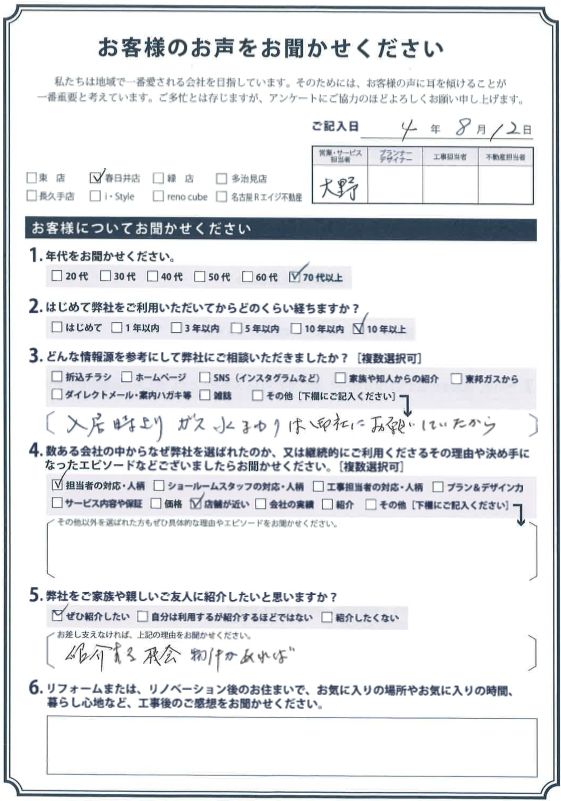 お客様のお声をお聞かせください
私たちは地域で一番愛される会社を目指しています。そのためには、お客様の声に耳を傾けることが
一番重要と考えています。ご多忙とは存じますが、アンケートにご協力のほどよろしくお願い申し上げます。
ご記入日 4 年 8 月 12 日
営業・サービス担当者 プランナーデザイナー 工事担当者 不動産担当者
大野
□東 店 ☑春日井店 □緑 店 □多治見店
□長久手店 □i・Style □reno cube □名古屋Rエイジ不動産
お客様についてお聞かせください
1.年代をお聞かせください。
□20代 □30代 □40代 □50代 □60代 ☑70代以上
2.はじめて弊社をご利用いただいてからどのくらい経ちますか?
□はじめて □1年以内 □3年以内 □5年以内 □10年以内 ☑10年以上
3.どんな情報源を参考にして弊社にご相談いただきましたか?[複数選択可]
□折込チラシ □ホームページ □SNS(インスタグラムなど) □家族や知人からの紹介 □東邦ガスから
□ダイレクトメール・案内ハガキ等 □雑誌 □その他[下欄にご記入ください]
入居時より ガス 水まわり は 御社に お願いしていたから
4.数ある会社の中からなぜ弊社を選ばれたのか、又は継続的にご利用くださるその理由や決め手に
なったエピソードなどございましたらお聞かせください。[複数選択可]
☑担当者の対応・人柄 □ショールームスタッフの対応・人柄 □工事担当者の対応・人柄 □プラン&デザイン力
□サービス内容や保証 □価格 ☑店舗が近い □会社の実績 □紹介 □その他[下欄にご記入ください]
その他以外を選ばれた方もぜひ具体的な理由やエピソードをお聞かせください。
5.弊社をご家族や親しいご友人に紹介したいと思いますか?
☑ぜひ紹介したい □自分は利用するが紹介するほどではない □紹介したくない
お差し支えなければ、上記の理由をお聞かせください。
紹介する 機会 物件があれば
6.リフォームまたは、リノベーション後のお住まいで、お気に入りの場所やお気に入りの時間、
暮らし心地など、工事後のご感想をお聞かせください。